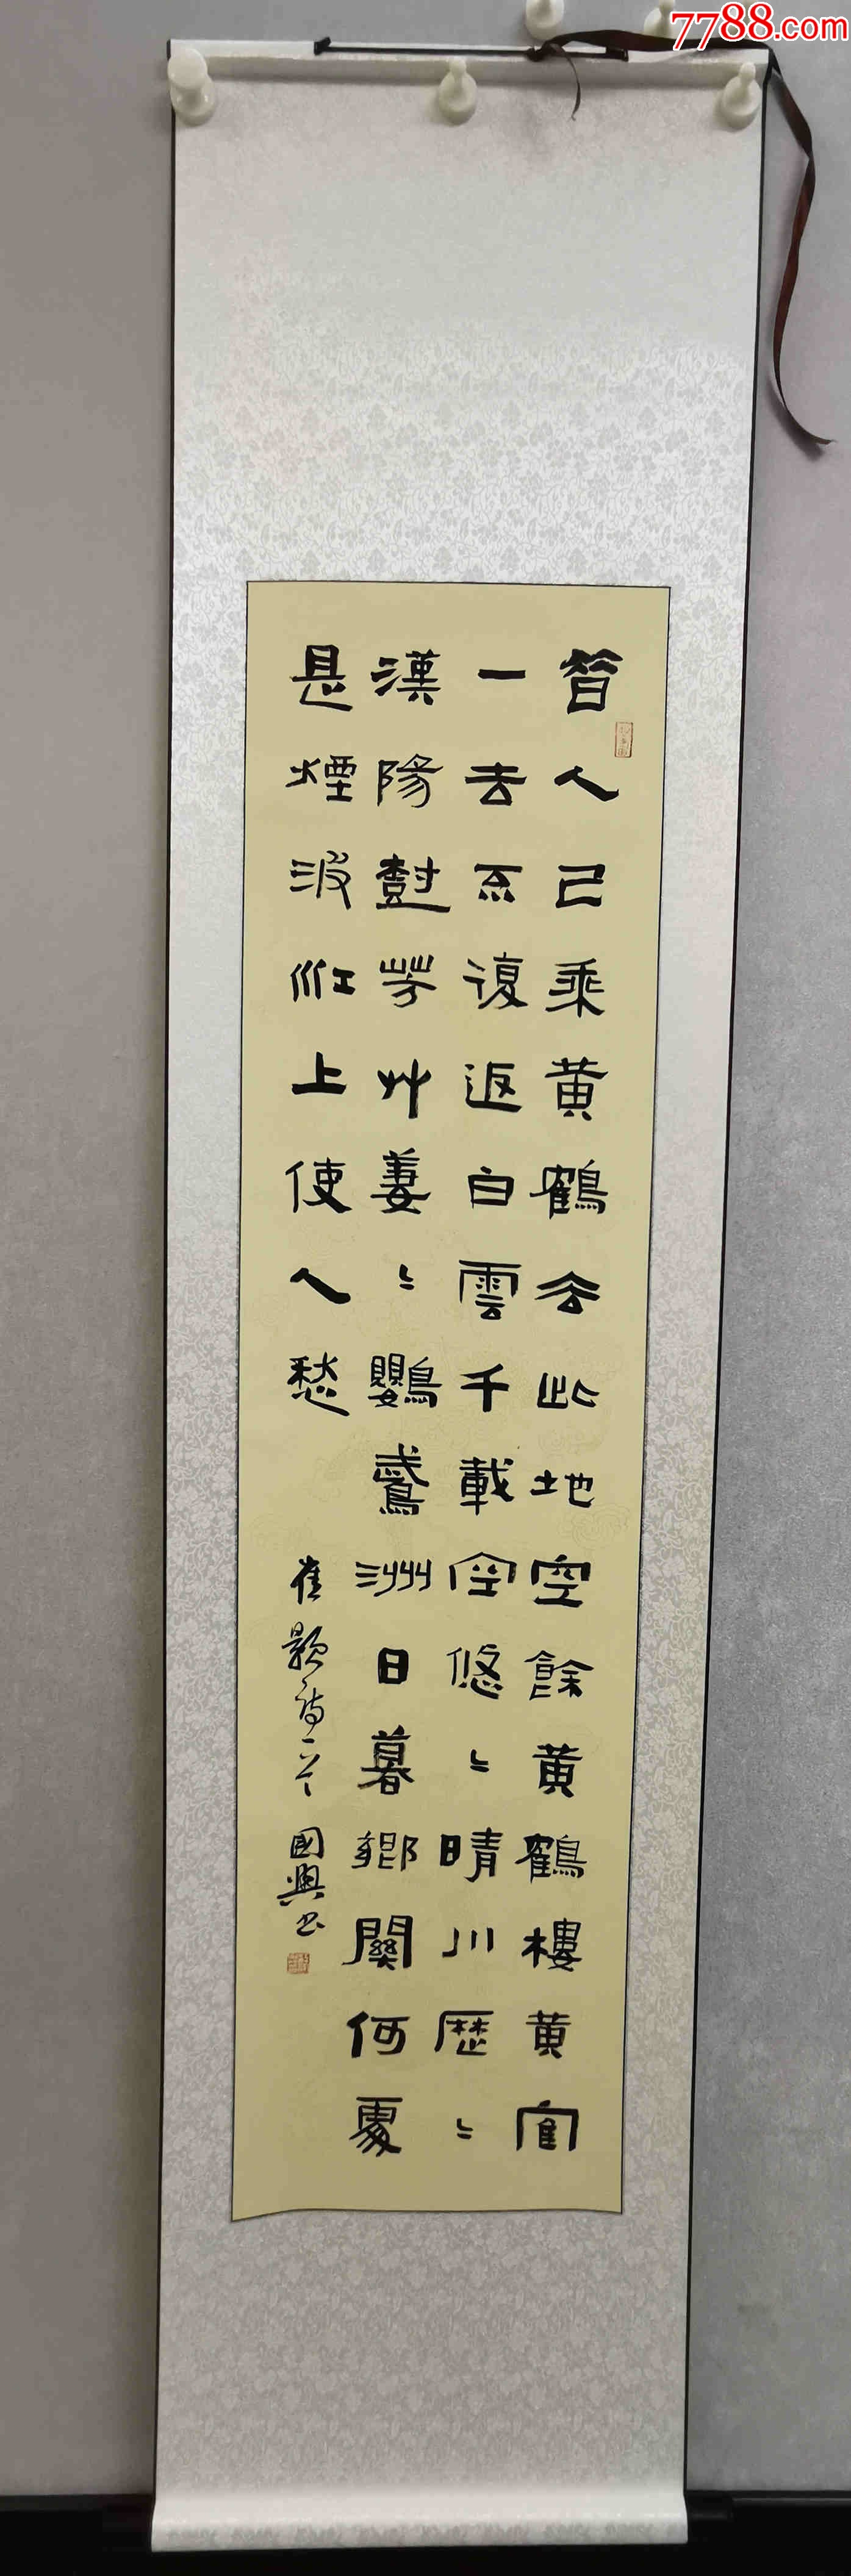 7788.com
昔人已乘黃鶴去此地空餘黃鶴樓黃雀
一去不復返白雲千載空悠〻晴川歷〻
漢陽樹芳艸萋〻鸚鵡洲日暮鄉關何處
是煙波江上使人愁
崔顥詩一首 國興书